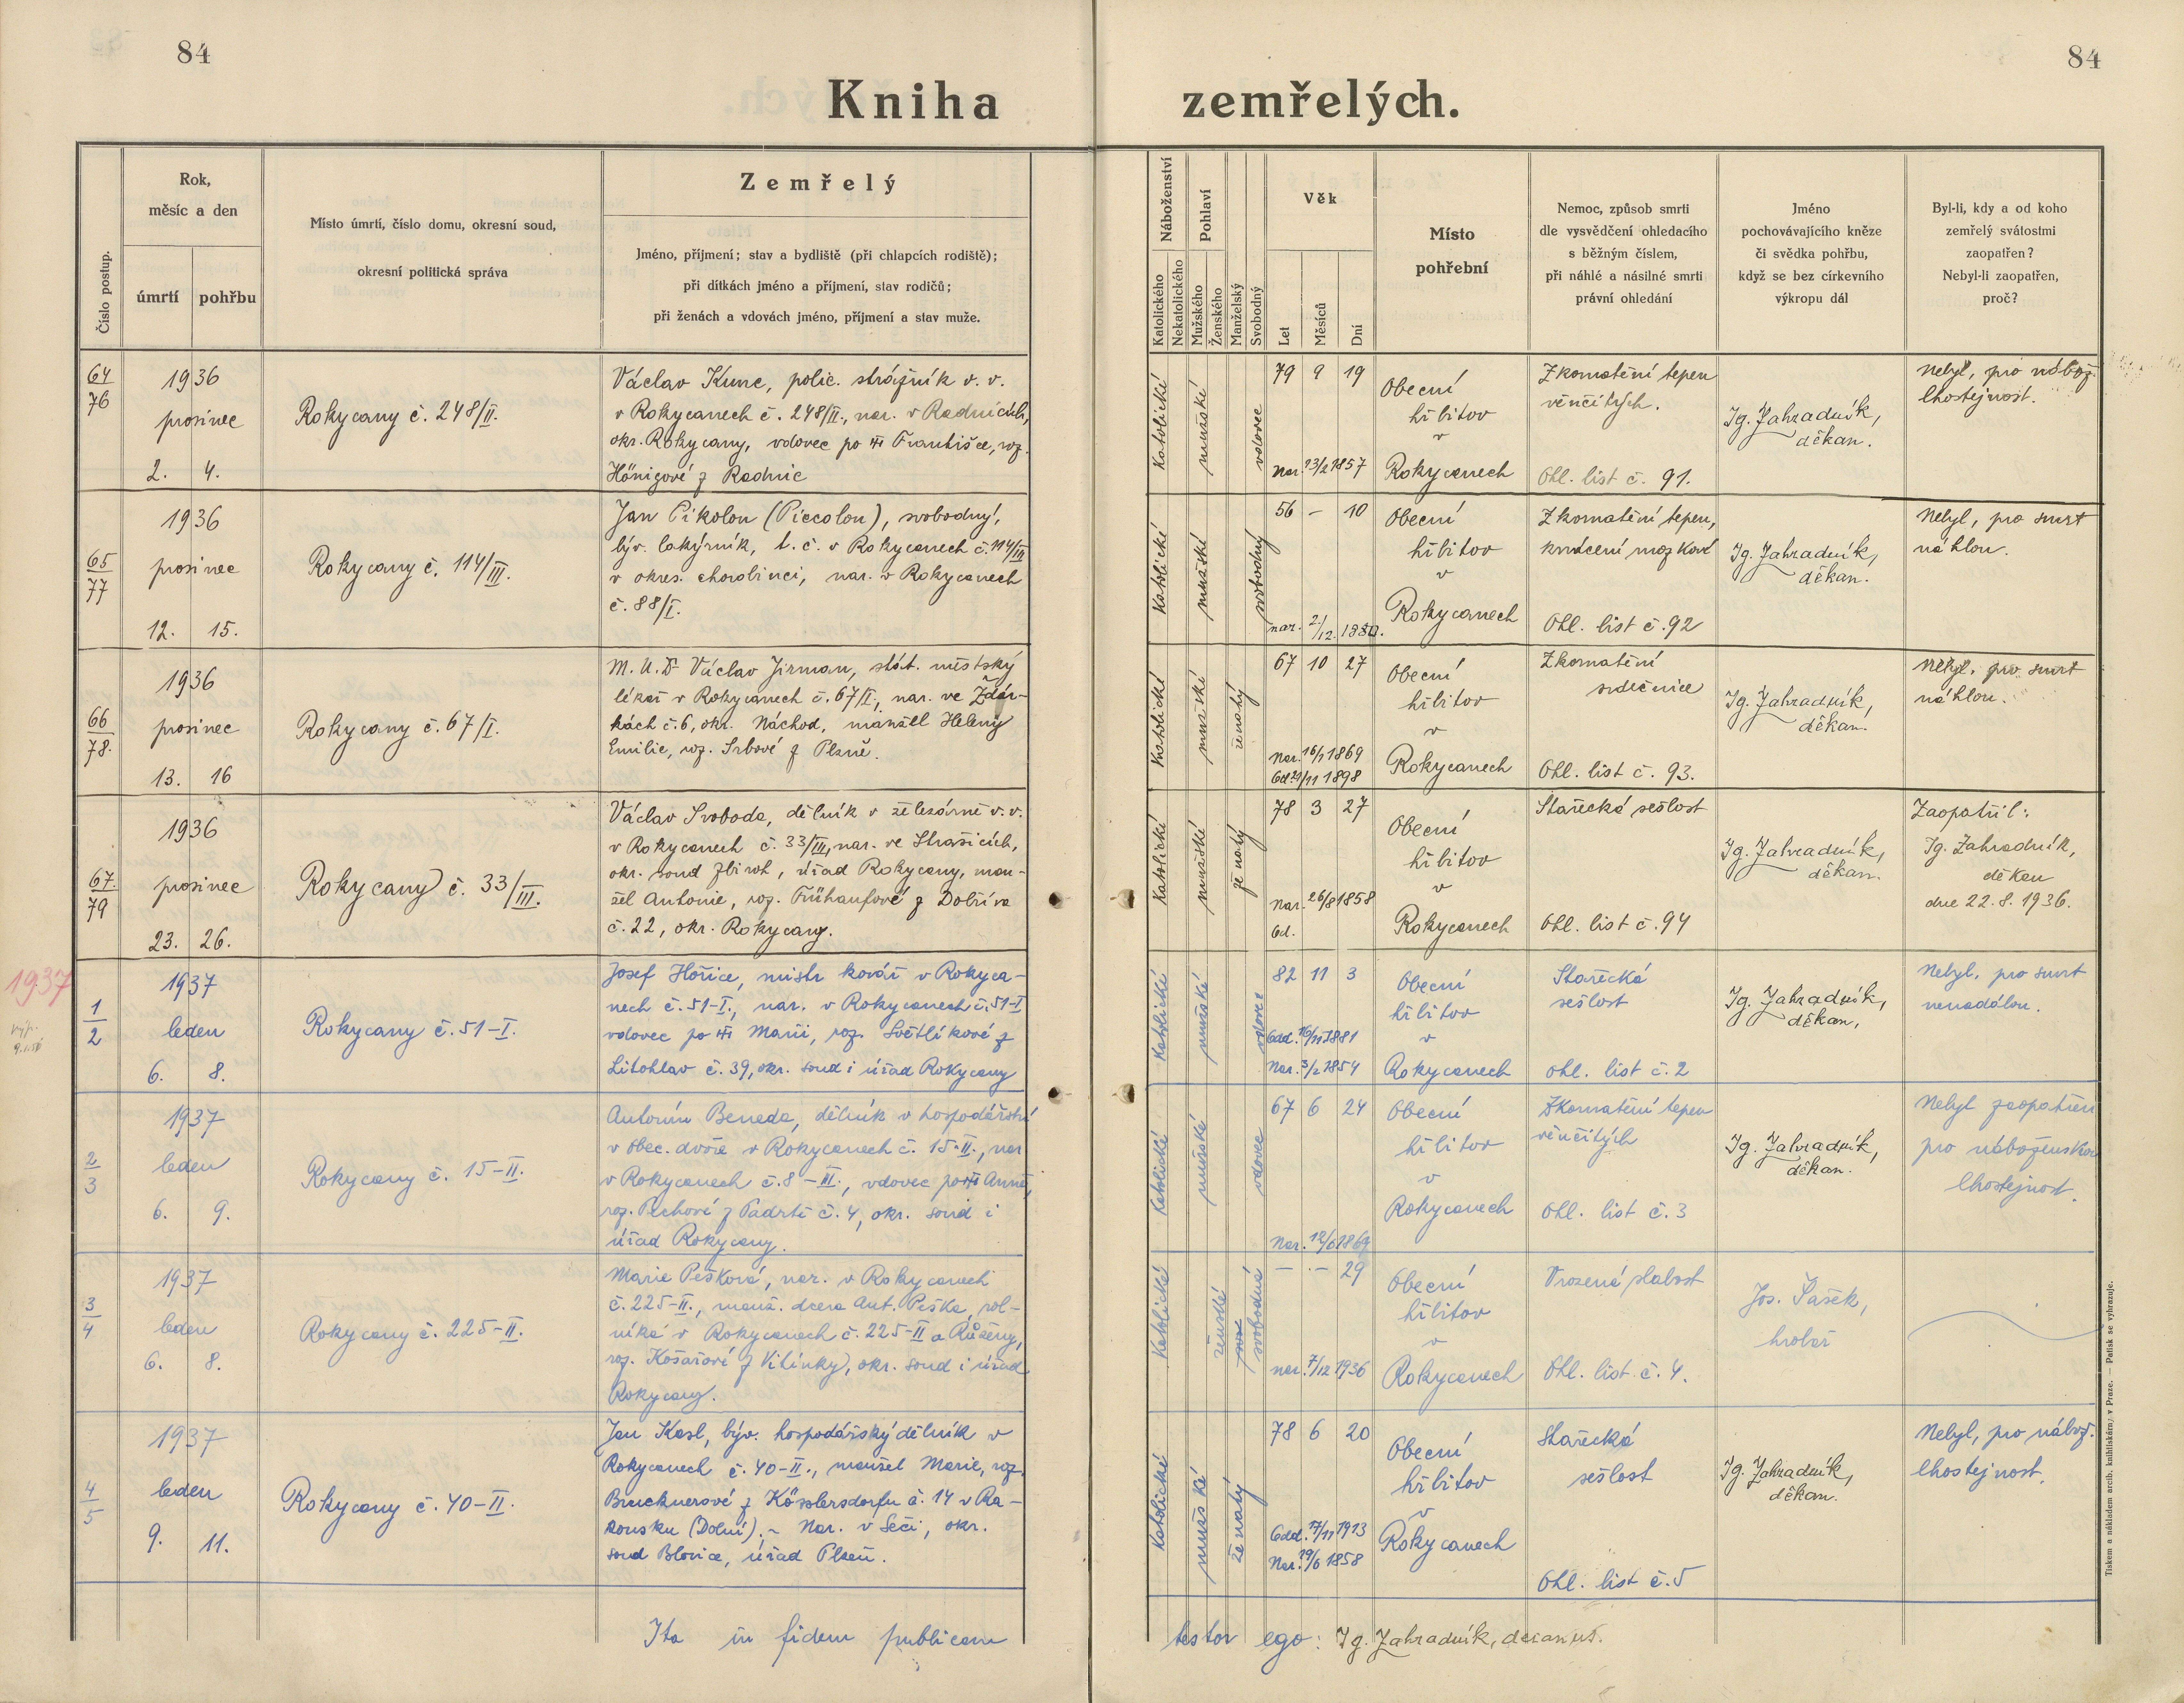 84
84
Kniha zemřelých.
Číslo postup.
Rok,
měsíc a den
úmrtí
pohřbu
Místo úmrtí, číslo domu, okresní soud,
okresní politická správa
Zemřelý
Jméno, příjmení; stav a bydliště (při chlapcích rodiště);
při dítkách jméno a příjmení, stav rodičů;
při ženách a vdovách jméno, příjmení a stav muže.
Náboženství
Katolického
Nekatolického
Pohlaví
Mužského
Ženského
Manželský
Svobodný
Věk
Let
Měsíců
Dní
Místo
pohřební
Nemoc, způsob smrti
dle vysvědčení ohledacího
s běžným číslem,
při náhlé a násilné smrti
právní ohledání
Jméno
pochovávajícího kněze
či svědka pohřbu,
když se bez církevního
výkropu dál
Byl-li, kdy a od koho
zemřelý svátostmi
zaopatřen?
Nebyl-li zaopatřen,
proč?
64
76
1936
prosinec
2. 4.
Rokycany č. 248/II.
Václav Kunc, polic. strážník v. v.
v Rokycanech č. 248/II., nar. v Radnicích,
okr. Rokycany, vdovec po Františce, roz.
Hönigové z Radnic
Katolické
mužské
vdovec
79 9 19
Nar. 13/2 1857
Obecní
hřbitov
v
Rokycanech
Zkornatění tepen
věnčitých.
Ohl. list č. 91.
Ig. Zahradník,
děkan.
Nebyl, pro nábož.
lhostejnost.
65
77
1936
prosinec
12. 15.
Rokycany č. 114/III.
Jan Pikolon (Piccolon), svobodný,
býv. lakýrník, t. č. v Rokycanech č. 114/III
v okres. chorobinci, nar. v Rokycanech
č. 88/I.
Katolické
mužské
svobodný
56 - 10
nar. 2/12. 1880.
Obecní
hřbitov
v
Rokycanech
Zkornatění tepen,
krvácení mozkové
Ohl. list č. 92
Ig. Zahradník,
děkan.
Nebyl, pro smrt
náhlou.
66
78.
1936
prosinec
13. 16
Rokycany č. 67/I.
M. U. Dr Václav Jirman, stát. městský
lékař v Rokycanech č. 67/I., nar. ve Žďár-
kách č. 6, okr. Náchod, manžel Heleny
Emilie, roz. Srbové z Plzně.
Katolické
mužské
ženatý
67 10 27
Nar. 16/1 1869
Odd. 21/11 1898
Obecní
hřbitov
v
Rokycanech
Zkornatění
srdečnice
Ohl. list č. 93.
Ig. Zahradník,
děkan.
Nebyl, pro smrt
náhlou.
67.
79
1936
prosinec
23. 26.
Rokycany č. 33/III.
Václav Svoboda, dělník v železárně v. v.
v Rokycanech č. 33/III, nar. ve Strašicích,
okr. soud Zbiroh, úřad Rokycany, man-
žel Antonie, roz. Frühaufové z Dobříva
č. 22, okr. Rokycany.
Katolické
mužské
ženatý
78 3 27
Nar. 26/8 1858
Od.
Obecní
hřbitov
v
Rokycanech
Stařecká sešlost
Ohl. list č. 94
Ig. Zahradník,
děkan.
Zaopatřil:
Ig. Zahradník,
děkan
dne 22. 8. 1936.
1937
1
2
1937
leden
6. 8.
Rokycany č. 51-I.
Josef Hořice, mistr kovář v Rokyca-
nech č. 51-I., nar. v Rokycanech č. 51-I
vdovec po Marii, roz. Světlíkové z
Litohlav č. 39, okr. soud i úřad Rokycany
Katolické
mužské
vdovec
82 11 3
Odd. 16/11 1881
Nar. 3/2 1854
Obecní
hřbitov
v
Rokycanech
Stařecká
sešlost
Ohl. list č. 2
Ig. Zahradník,
děkan,
Nebyl, pro smrt
nenadálou.
2
3
1937
leden
6. 9.
Rokycany č. 15-II.
Antonín Beneda, dělník v hospodářství
v obec. dvoře v Rokycanech č. 15-II., nar
v Rokycanech č. 8-III., vdovec po Anně,
roz. Plchové z Padrtě č. 4, okr. soud i
úřad Rokycany.
Katolické
mužské
vdovec
67 6 24
Nar. 12/6 1869
Obecní
hřbitov
v
Rokycanech
Zkornatění tepen
věnčitých
Ohl. list č. 3
Ig. Zahradník,
děkan.
Nebyl zaopatřen
pro náboženskou
lhostejnost.
3
4
1937
leden
6. 8.
Rokycany č. 225-II.
Marie Pešková, nar. v Rokycanech
č. 225-II., manž. dcera Ant. Peška, rol-
níka v Rokycanech č. 225-II a Růženy,
roz. Košařové z Vitinky, okr. soud i úřad
Rokycany.
Katolické
ženské
svobodná
- - 29
nar. 7/12 1936
Obecní
hřbitov
v
Rokycanech
Vrozená slabost
Ohl. list č. 4.
Jos. Šašek,
hrobař
4
5
1937
leden
9. 11.
Rokycany č. 40-II.
Jan Kasl, býv. hospodářský dělník v
Rokycanech č. 40-II., manžel Marie, roz.
Brucknerové z Kösslersdorfu č. 14 v Ra-
kousku (Dolní). - Nar. v Seči, okr.
soud Blovice, úřad Plzeň.
Katolické
mužské
ženatý
78 6 20
Odd. 17/11 1913
Nar. 19/6 1858
Obecní
hřbitov
v
Rokycanech
Stařecká
sešlost
Ohl. list č. 5
Ig. Zahradník,
děkan.
Nebyl, pro nábož.
lhostejnost.
Ita in fidem publicam testor ego: Ig. Zahradník, decanus.
Tiskem a nákladem arcib. knihtiskárny v Praze. — Patisk se vyhrazuje.